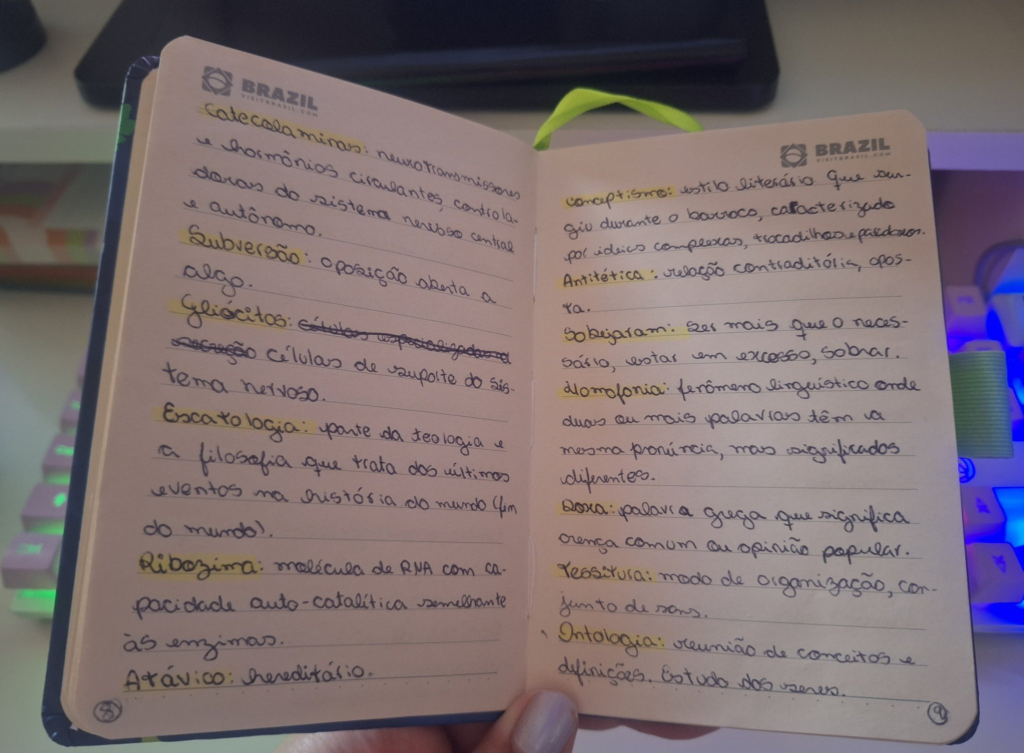 BRAZIL
VISITBRASIL.COM
Catecolaminas: neurotransmissores
e hormônios circulantes, controla-
doras do sistema nervoso central
e autônomo.
Subversão: oposição aberta a
algo.
Gliócitos: células especializadas
secreção células de suporte do sis-
tema nervoso.
Escatologia: parte da teologia e
a filosofia que trata dos últimos
eventos na história do mundo (fim
do mundo).
Ribozima: molécula de RNA com ca-
pacidade auto-catalítica semelhante
às enzimas.
Atávico: hereditário.
8
BRAZIL
VISITBRASIL.COM
Conceptismo: estilo literário que sur-
giu durante o barroco, caracterizado
por ideias complexas, trocadilhos e paradoxos.
Antitética: relação contraditória, opos-
ta.
Sobejaram: Ser mais que o neces-
sário, estar em excesso, sobrar.
Homofonia: fenômeno linguístico onde
duas ou mais palavras têm a
mesma pronúncia, mas significados
diferentes.
Doxa: palavra grega que significa
crença comum ou opinião popular.
Tessitura: modo de organização, con-
junto de sons.
Ontologia: reunião de conceitos e
definições. Estudo dos seres.
9